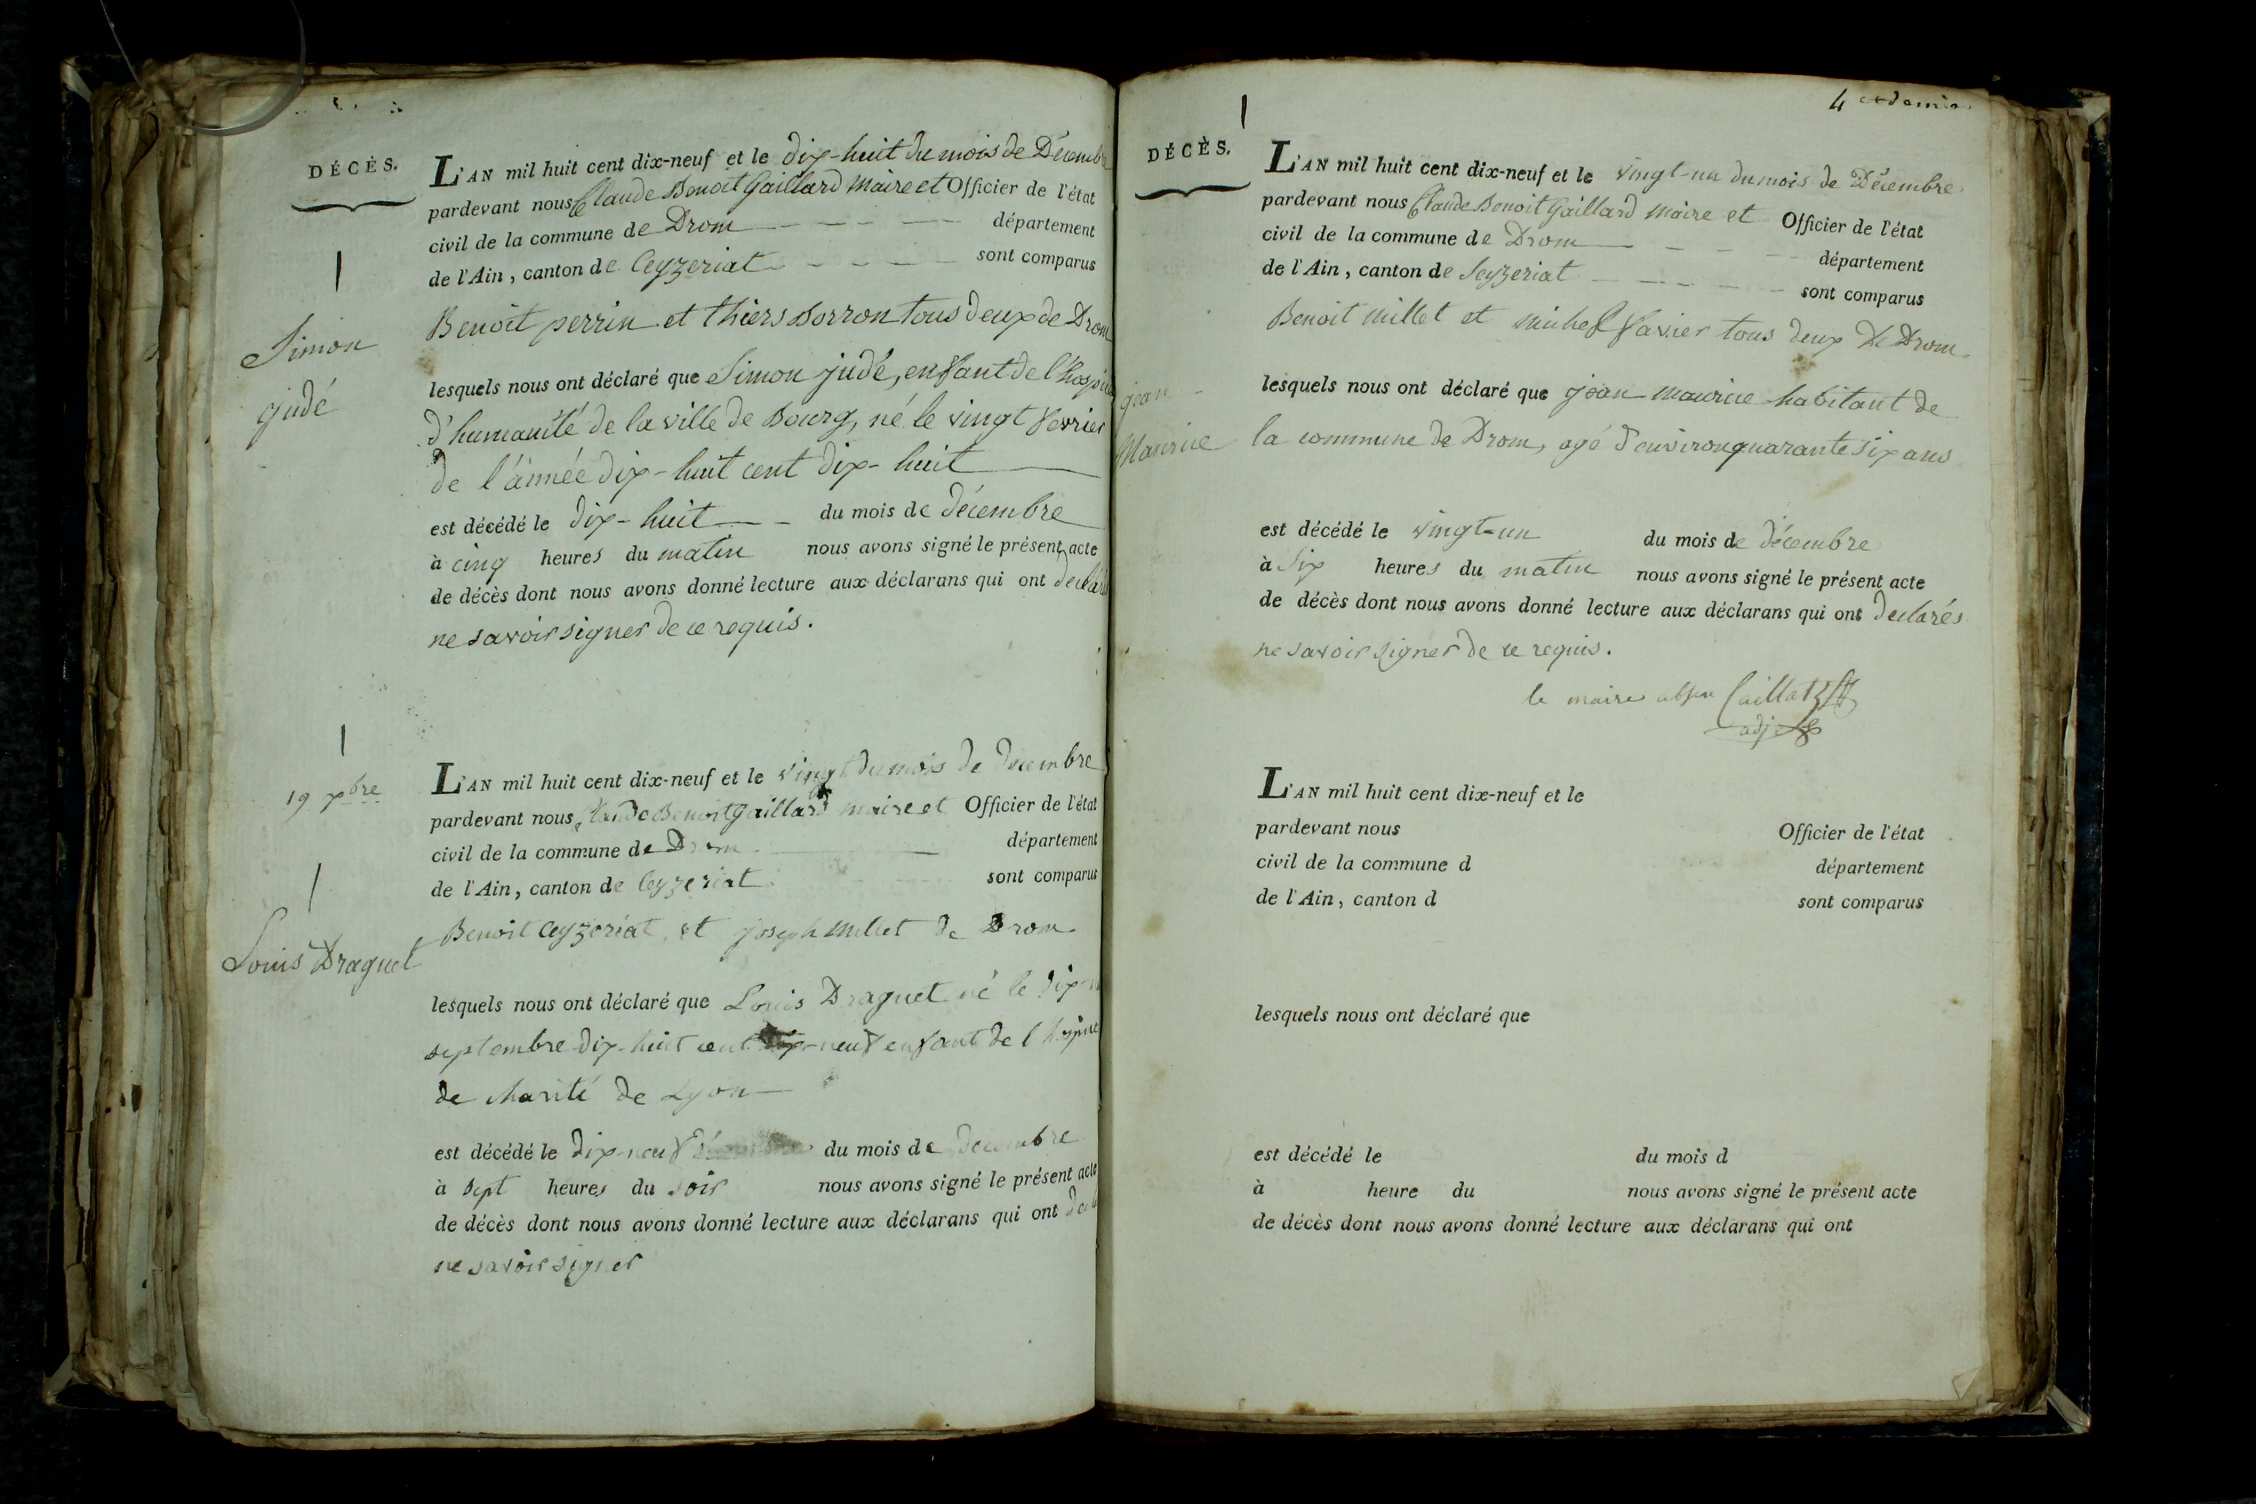 DÉCÈS.
L'AN mil huit cent dix-neuf et le dix-huit du mois de Décembre
pardevant nous Claude Benoit Gaillard Maire et Officier de l'état
civil de la commune de Drom département
de l'Ain, canton de Ceyzeriat sont comparus
Benoit perrin et thiers Borron tous deux de Drom
Simon
judé
lesquels nous ont déclaré que Simon judé, enfant de l'hospice
d'humanité de la ville de Bourg, né le vingt fevrier
de l'année dix-huit cent dix-huit
est décédé le dix-huit du mois de décembre
à cinq heures du matin nous avons signé le présent acte
de décès dont nous avons donné lecture aux déclarans qui ont declarés
ne savoir signer de ce requis.
19 xbre
L'AN mil huit cent dix-neuf et le vingt du mois de decembre
pardevant nous Claude Benoit Gaillard maire et Officier de l'état
civil de la commune de Drom département
de l'Ain, canton de Ceyzeriat sont comparus
Benoit Ceyzeriat et joseph Millet de Drom
Louis Draguet
lesquels nous ont déclaré que Louis Draguet né le dix
septembre dix-huit cent dix-neuf enfant de l'hospice
de charité de Lyon
est décédé le dix-neuf du mois de decembre
à sept heures du soir nous avons signé le présent acte
de décès dont nous avons donné lecture aux déclarans qui ont
ne savoir signer
4
DÉCÈS.
L'AN mil huit cent dix-neuf et le vingt-un du mois de Décembre
pardevant nous Claude Benoit Gaillard maire et Officier de l'état
civil de la commune de Drom département
de l'Ain, canton de Seyzeriat sont comparus
Benoit Millet et michel favier tous deux De Drom
jean
Maurice
lesquels nous ont déclaré que jean maurice habitant de
la commune de Drom, agé d'environ quarante six ans
est décédé le vingt-un du mois de décembre
à six heures du matin nous avons signé le présent acte
de décès dont nous avons donné lecture aux déclarans qui ont declarés
ne savoir signer de ce requis.
le maire absen Caillat
adj
L'AN mil huit cent dix-neuf et le
pardevant nous Officier de l'état
civil de la commune d département
de l'Ain, canton d sont comparus
lesquels nous ont déclaré que
est décédé le du mois d
à heure du nous avons signé le présent acte
de décès dont nous avons donné lecture aux déclarans qui ont